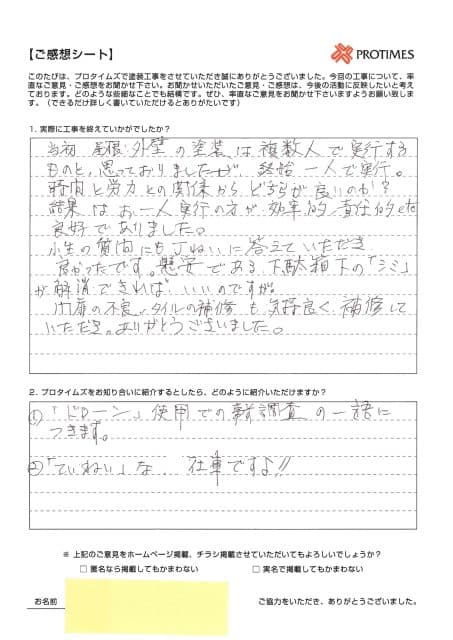 【ご感想シート】
PROTIMES
このたびは、プロタイムズで塗装工事をさせていただき誠にありがとうございました。今回の工事について、率
直なご意見・ご感想をお聞かせ下さい。お聞かせいただいたご意見・ご感想は、今後の活動に反映したいと考え
ております。どのような些細なことでも結構です。ぜひ、率直なご意見をお聞かせ下さいますようお願い致しま
す。（できるだけ詳しく書いていただけるとありがたいです）
1. 実際に工事を終えていかがでしたか？
当初 屋根・外壁の塗装は複数人で実行する
ものと思っておりましたが、終始一人で実行。
時間と労力との関係から、どちらが良いのか?
結果はお一人実行の方が効率的/責任的etc
良好でありました。
小生の質問にも丁ねいに答えていただき
良かったです。懸案である下駄箱下の「シミ」
が解消できればいいのですが。
の不良、タイルの補修も気持良く補修して
いただき、ありがとうございました。
2. プロタイムズをお知り合いに紹介するとしたら、どのように紹介いただけますか？
①「ドローン」使用での事前調査の一語に
つきます。
②「ていねい」な 仕事ですよ!!
※ 上記のご意見をホームページ掲載、チラシ掲載させていただいてもよろしいでしょうか？
□ 匿名なら掲載してもかまわない □ 実名で掲載してもかまわない
お名前
ご協力をいただき、ありがとうございました。